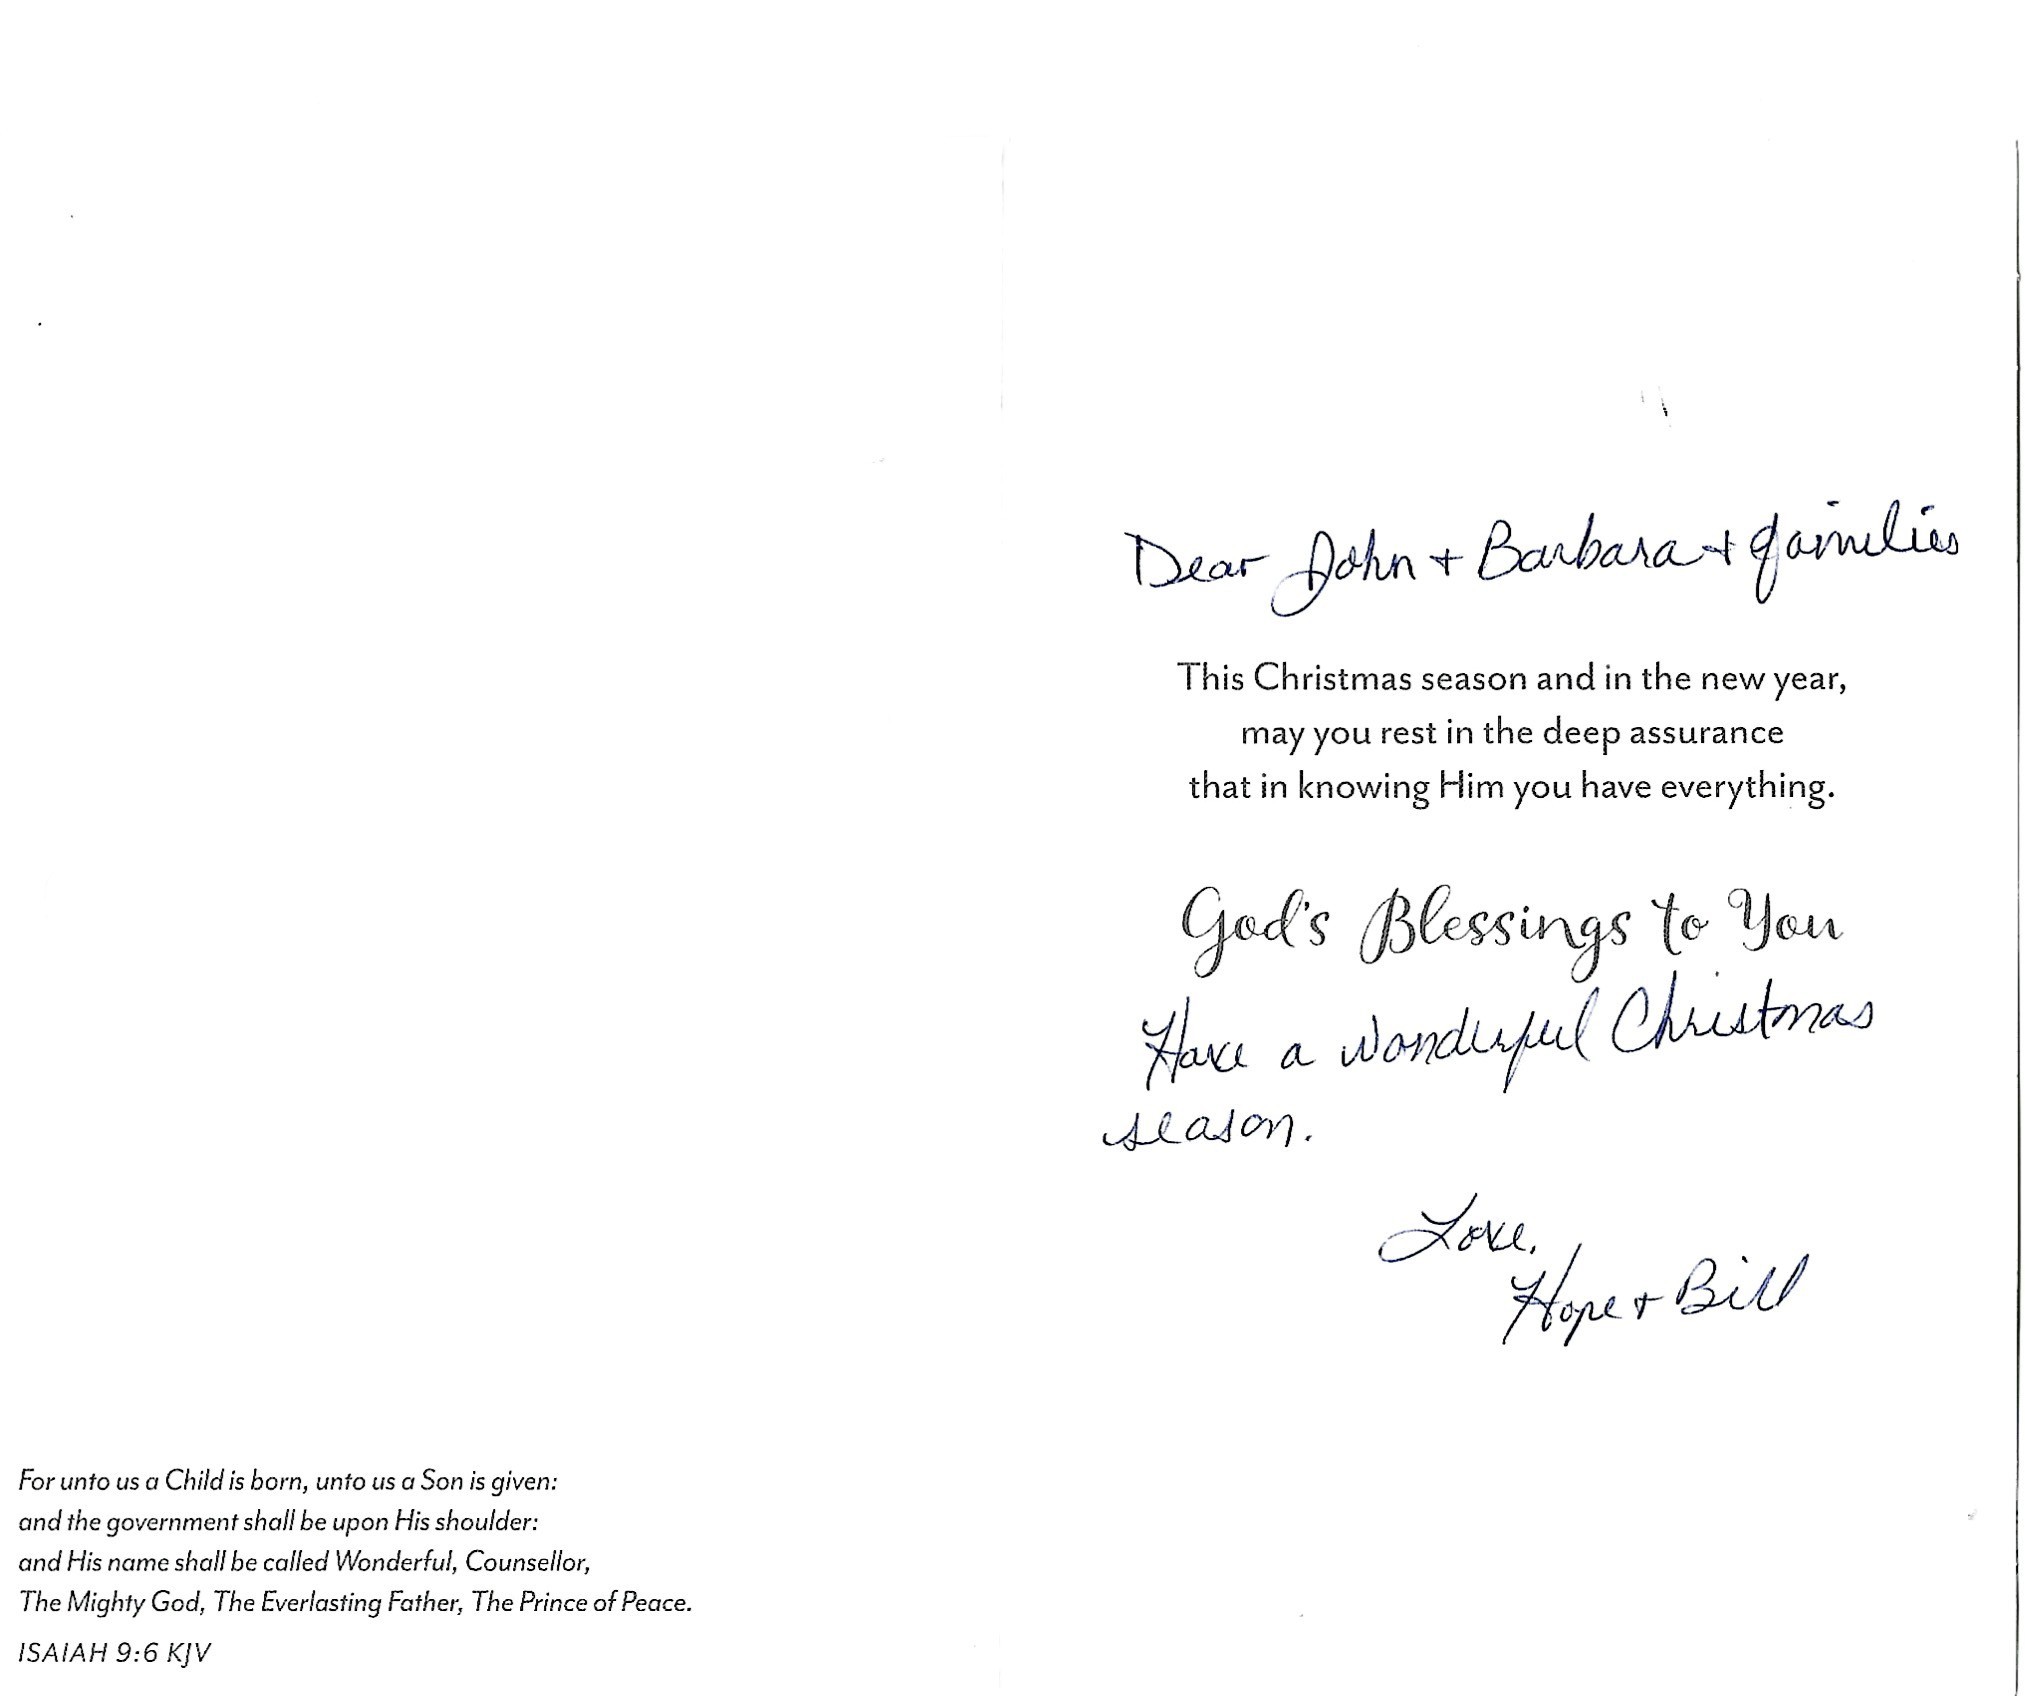 For unto us a Child is born, unto us a Son is given:
and the government shall be upon His shoulder:
and His name shall be called Wonderful, Counsellor,
The Mighty God, The Everlasting Father, The Prince of Peace.
ISAIAH 9:6 KJV
Dear John + Barbara + families
This Christmas season and in the new year,
may you rest in the deep assurance
that in knowing Him you have everything.
God's Blessings to You
Have a wonderful Christmas
season.
Love,
Hope + Bill